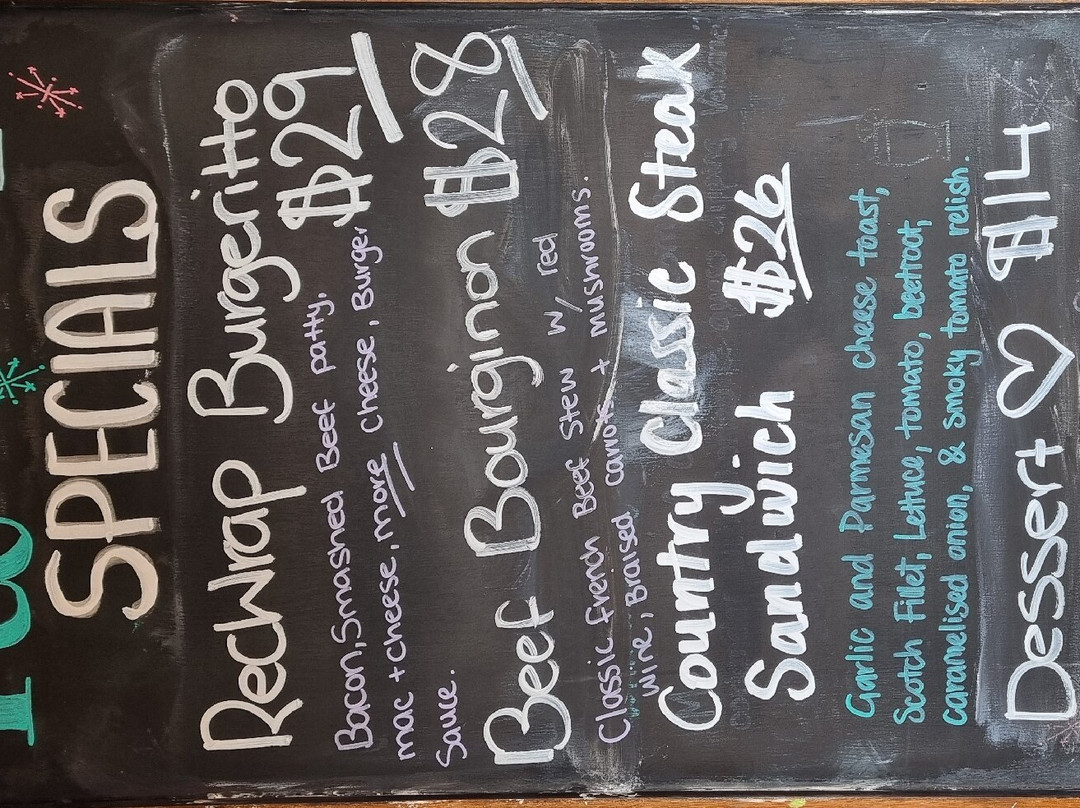 SPECIALS
RecWrap Burgeritto
$29
Bacon, Smashed Beef patty,
mac + cheese, more cheese, Burger
Sauce.
Beef Bourginon $28
Classic french Beef Stew w/ red
wine, Braised carrots + mushrooms.
Country Classic Steak
Sandwich $26
Garlic and Parmesan cheese toast,
Scotch Fillet, Lettuce, tomato, beetroot,
caramelised onion, & smoky tomato relish.
Dessert ♡ $14